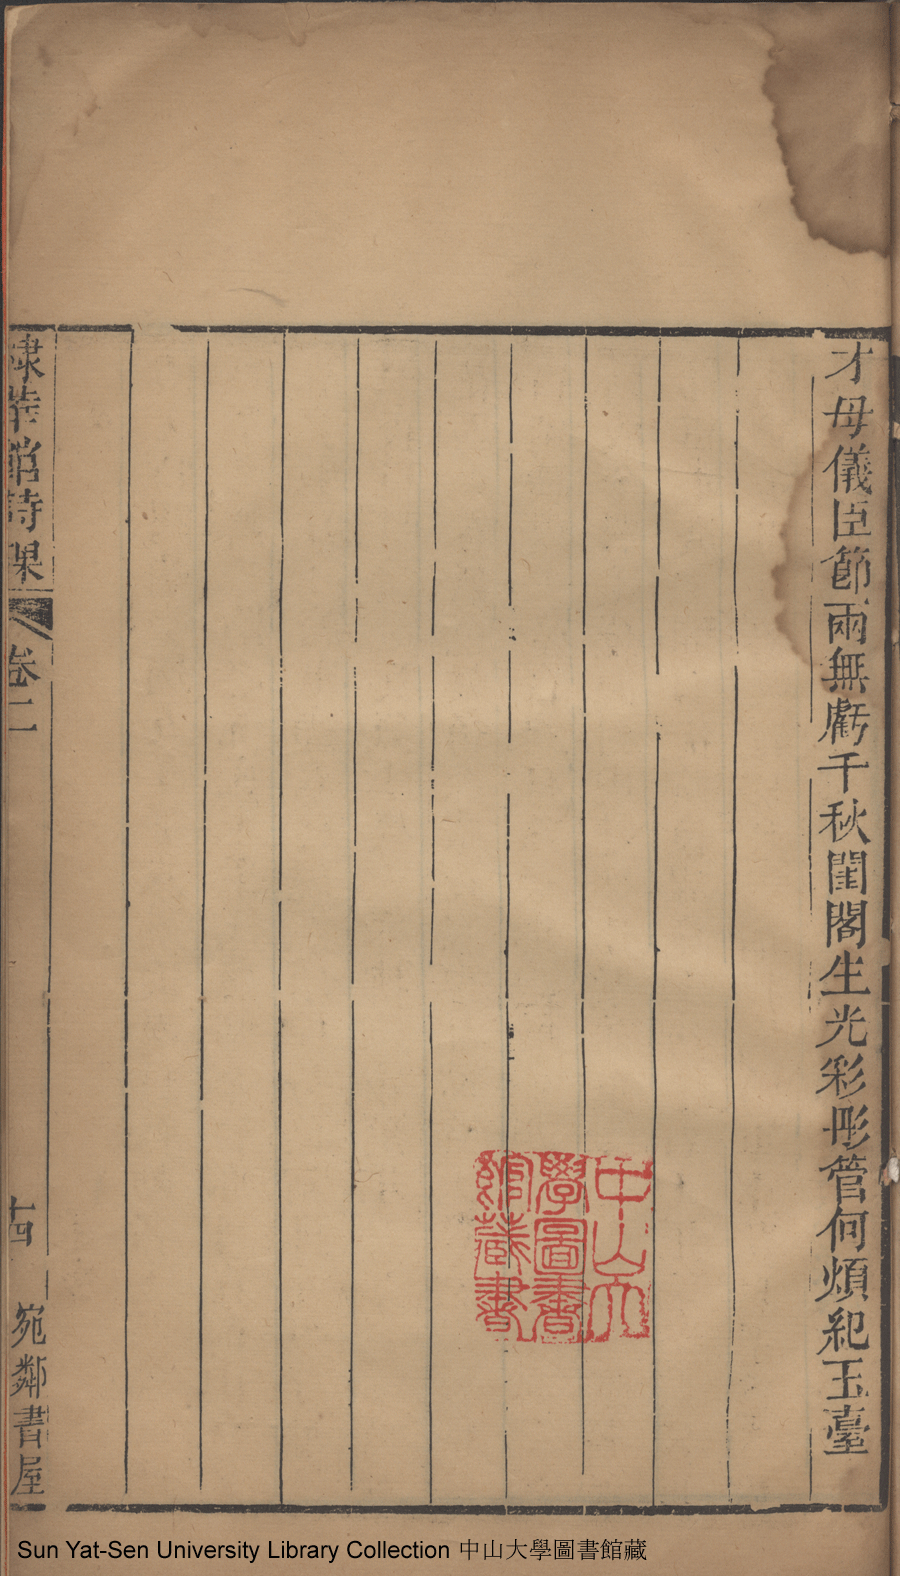 才母儀臣節兩無虧千秋閨閣生光彩彤管何煩紀玉臺
棣華館詩課
卷二
十四
宛鄰書屋
中山大
學圖書
館藏書
Sun Yat-Sen University Library Collection 中山大學圖書館藏